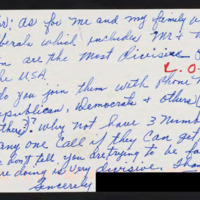 as for me and my family
which includes Mr +
are the most divisive
the U.S.A. L.O.
do you join them with phone
Republican, Democrats & others
Why not have 3 Num
any one call if they can get
don't tell, you are trying to be fa
are doing is very divisive.
Sincerely